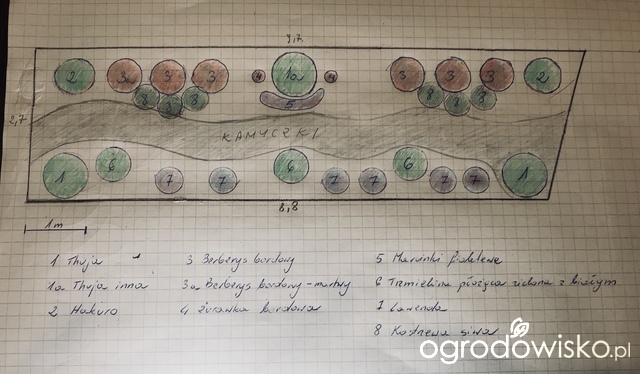 9,7
2 3a 3 3 4 1a 4 3 3 3 2
8 8 8 5 8 8 8
2,7
KAMYCZKI
1 6 7 7 6 7 7 6 7 7 1
8,8
1m
1 Thuja
1a Thuja inna
2 Hakuro
3 Berberys bordowy
3a Berberys bordowy-martwy
4 Żurawka bordowa
5 Marcinki fioletowe
6 Trzmielina płożąca zielona z białym
7 Lawenda
8 Kostrzewa sina
ogrodowisko.pl